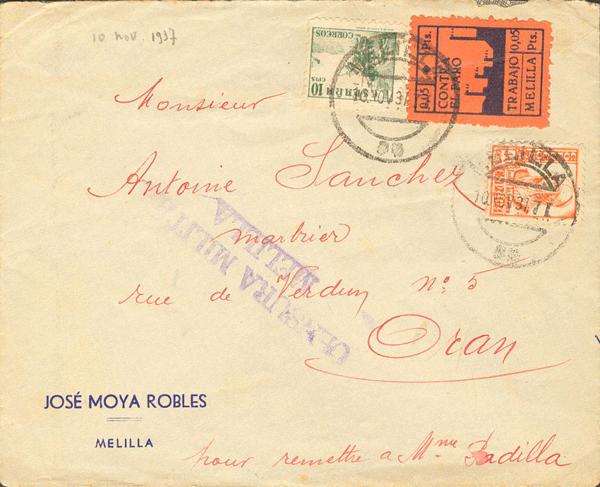 10 nov. 1937
CORREOS
10
CTS
0,05 Pts.
CONTRA
EL PARO
TRABAJO 0,05
MELILLA Pts.
MELILLA
Monsieur
Antoine Sanchez
marbrier
rue de Verdun Nº 5
Oran
CENSURA MILITAR
MELILLA
JOSÉ MOYA ROBLES
MELILLA
pour remettre a Mme Padilla